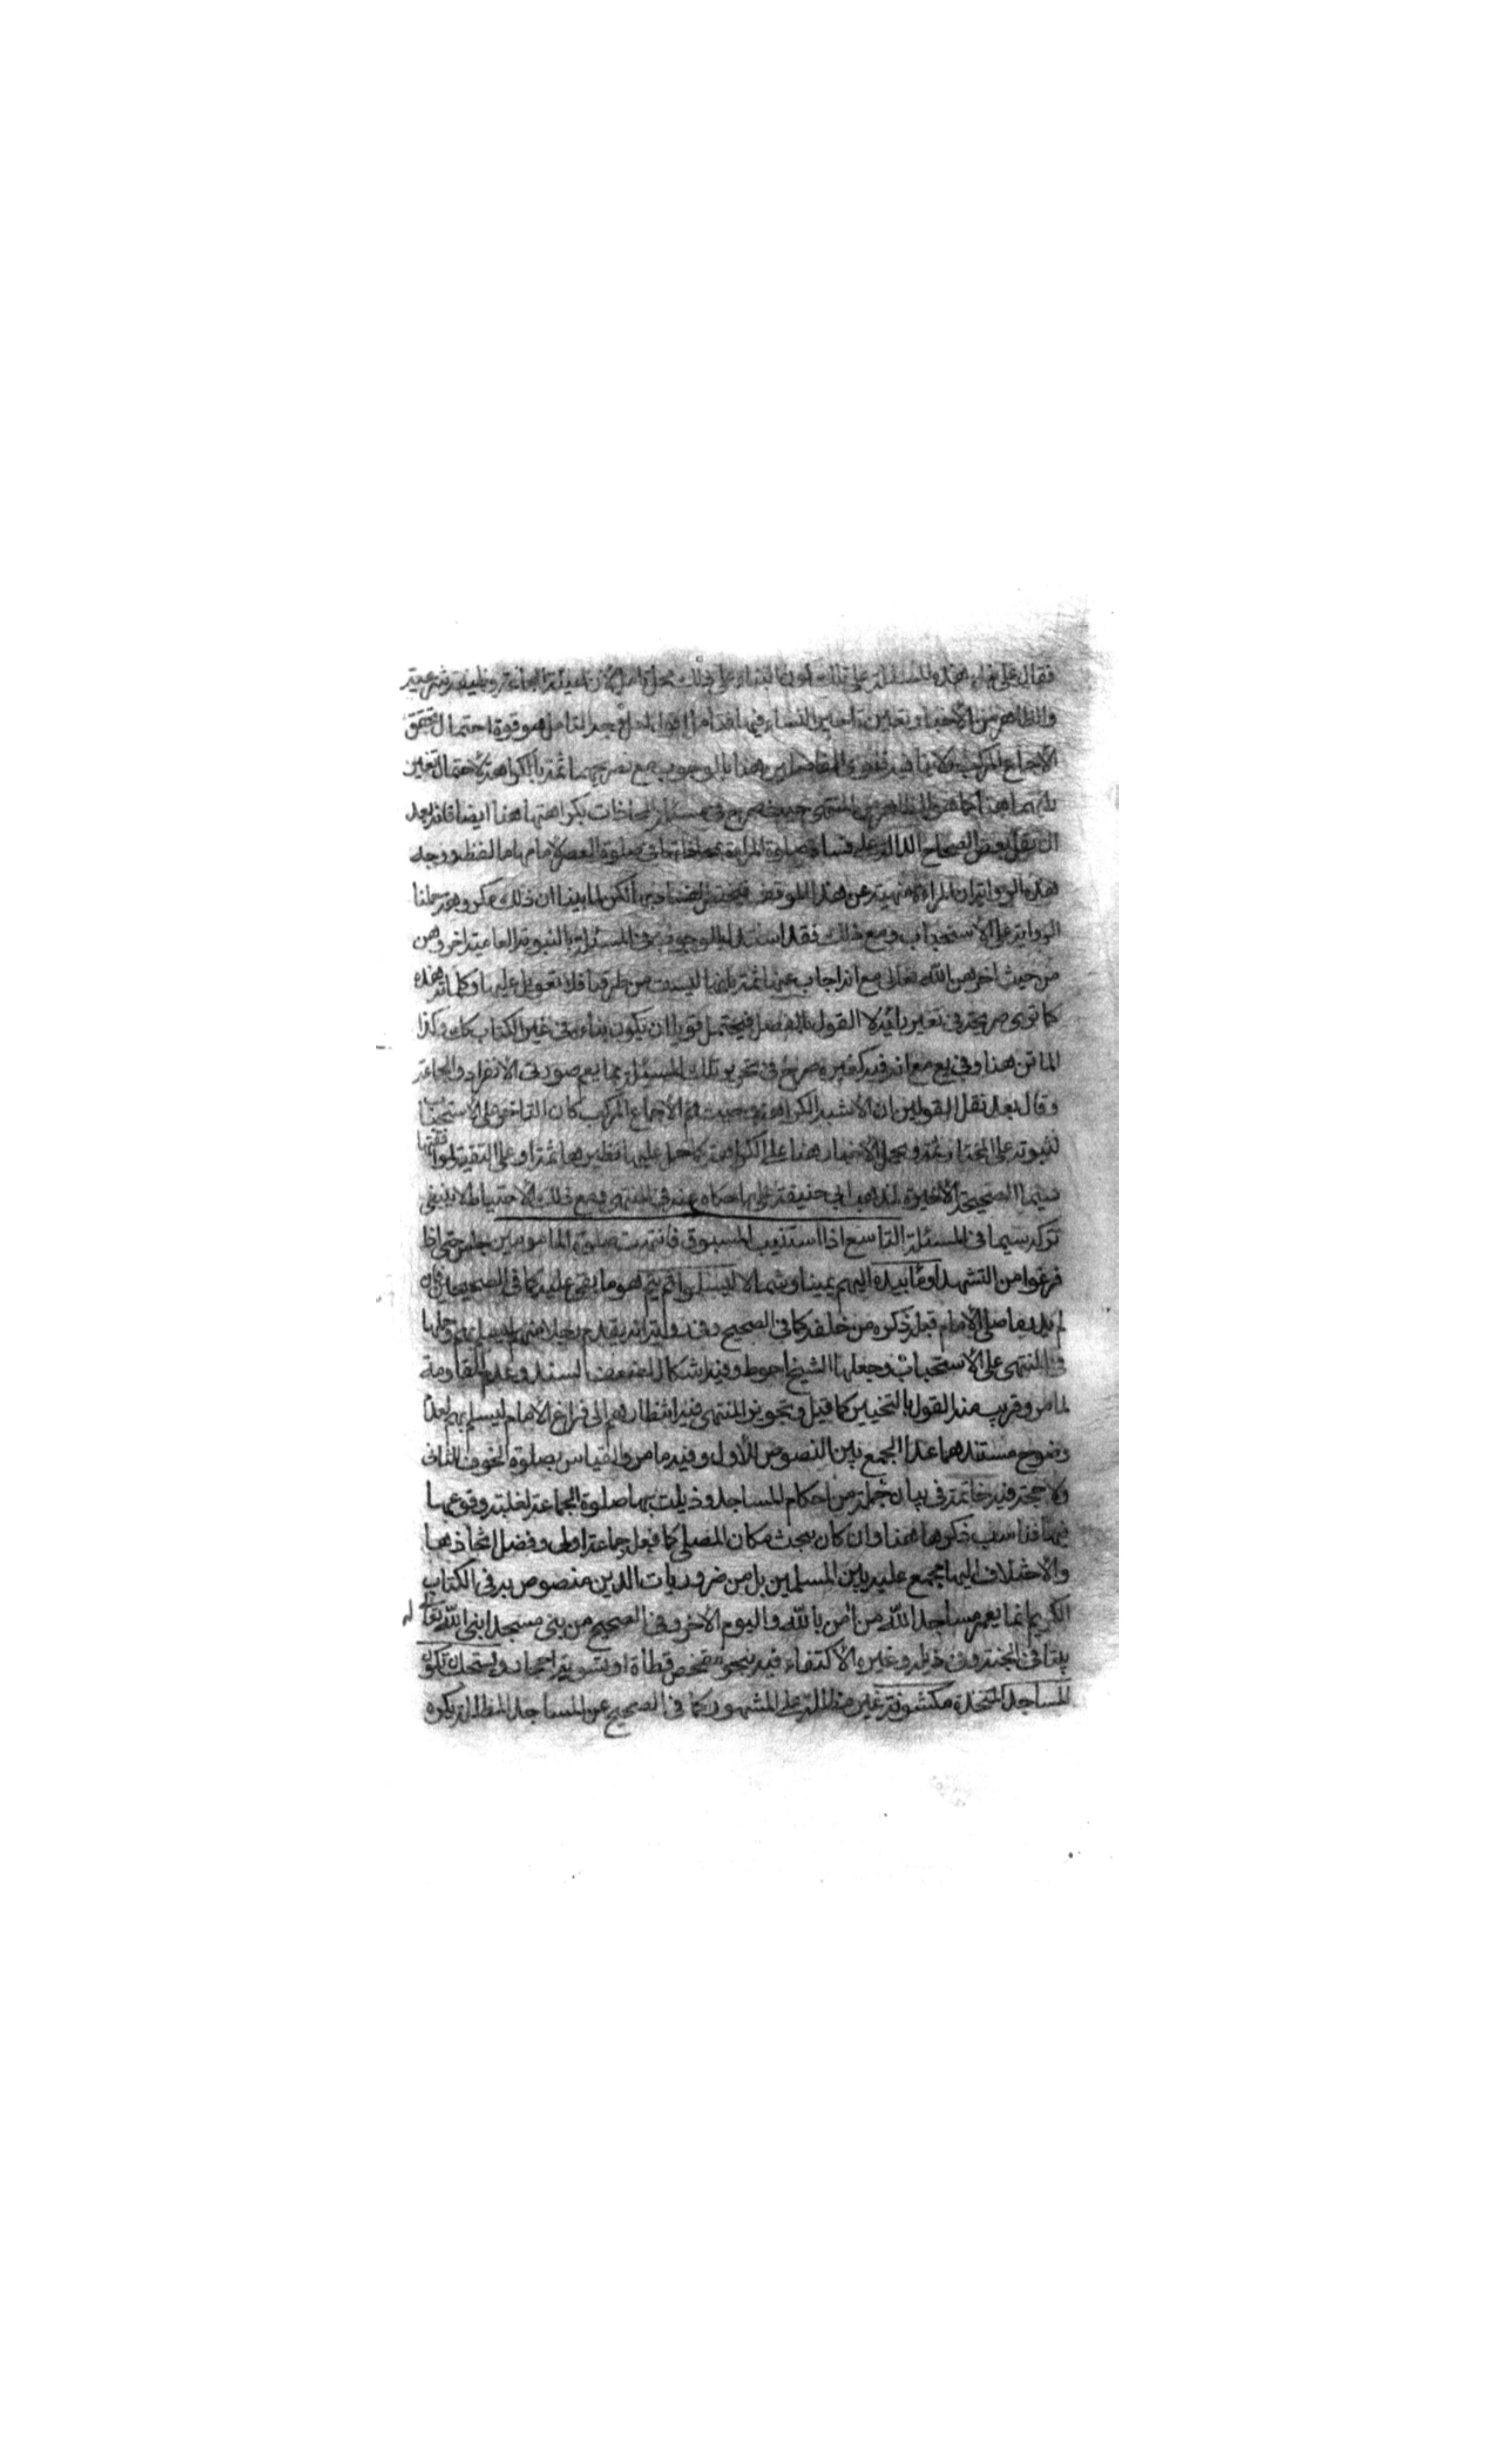 فقال على بناء هذه المسئلة على تلك اذ بناء على ذلك محل تامل لان هيئة الجماعة وظيفة شرعية
والظاهر من الاخبار تعين تاخير النساء فيها اقول لعل وجه التامل هو قوة احتمال تحقق
الاجماع المركب ولا ينافيه فتوى الفاضلين هنا بالوجوب مع تصريحهما ثمة بالكراهة لاحتمال تغير
رأيهما هنا كما هو الظاهر من المنتهى حيث صرح في مسئلة المحاذات بكراهتها هنا ايضا فانه بعد
ان نقل بعض الصحاح الدالة على فساد صلوة المراة بمحاذاتها في صلوة العصر لامامها ما لفظه ووجه
هذه الرواية ان المراة منهية عن هذا الموقف فيختص الفساد بها لكن لما بينا ان ذلك مكروه حملنا
الرواية على الاستحباب ومع ذلك فقد استدل للوجوب في المسئلة بالنبوية العامية اخروهن
من حيث اخرهن الله تعالى مع انه اجاب عنها ثمة بانها ليست من طرقنا فلا تعويل عليها وكلماته هذه
كما ترى صريحة في تغير رأيه لا القول بالفصل فيحتمل قويا ان يكون بناءه في غير الكتاب كك وكذا
الماتن هنا وفي يع مع انه فيه كغيره صرح في تحرير تلك المسئلة بما يعم صورتي الانفراد والجماعة
وقال بعد نقل القولين ان الاشبه الكراهة وحيث تم الاجماع المركب كان التاخر على الاستحباب
لثبوته على المختار ثمة ويحمل الاخبار هنا على الكراهة كما حمل عليها نظيرها ثمة او على التقية لموافقتها
سيما الصحيحة الاخيرة لمذهب ابي حنيفة على ما حكاه عنه في المنتهى ومع ذلك الاحتياط لا ينبغي
تركه سيما في المسئلة التاسع اذا استنيب المسبوق فانتهت صلوة المامومين جلس حتى اذا
فرغوا من التشهد اومأ بيده اليهم يمينا وشمالا ليسلموا ثم يتم هو ما بقي عليه كما في الصحيحين فان
لم يدر ما صلى الامام قبله ذكره من خلفه كما في الصحيح وفي رواية انه يقدم رجلا منهم ليسلم بهم وحملها
في المنتهى على الاستحباب وجعلها الشيخ احوط وفيه اشكال لضعف السند وعدم المقاومة
لما مر وقريب منه القول بالتخيير كما قيل وتجويز المنتهى فيه انتظارهم الى فراغ الامام ليسلم بهم لعدم
وضوح مستندهما عدا الجمع بين النصوص للاول وفيه ما مر والقياس بصلوة الخوف للثاني
ولا حجة فيه خاتمة في بيان جملة من احكام المساجد وذيلت بها صلوة الجماعة لغلبة وقوعها
فيها فناسب ذكرها هنا وان كان ببحث مكان المصلى كما فعل جماعة اولى وفضل اتخاذها
والاختلاف اليها مجمع عليه بين المسلمين بل من ضروريات الدين منصوص به في الكتاب
الكريم انما يعمر مساجد الله من امن بالله واليوم الاخر وفي الصحيح من بنى مسجدا بنى الله تعالى له
بيتا في الجنة وفي ذيله وغيره الاكتفاء فيه بنحو مفحص قطاة او بتسوية احجار ويستحب ان تكون
المساجد المتخذة مكشوفة غير مظللة على المشهور كما في الصحيح عن المساجد المظللة يكره